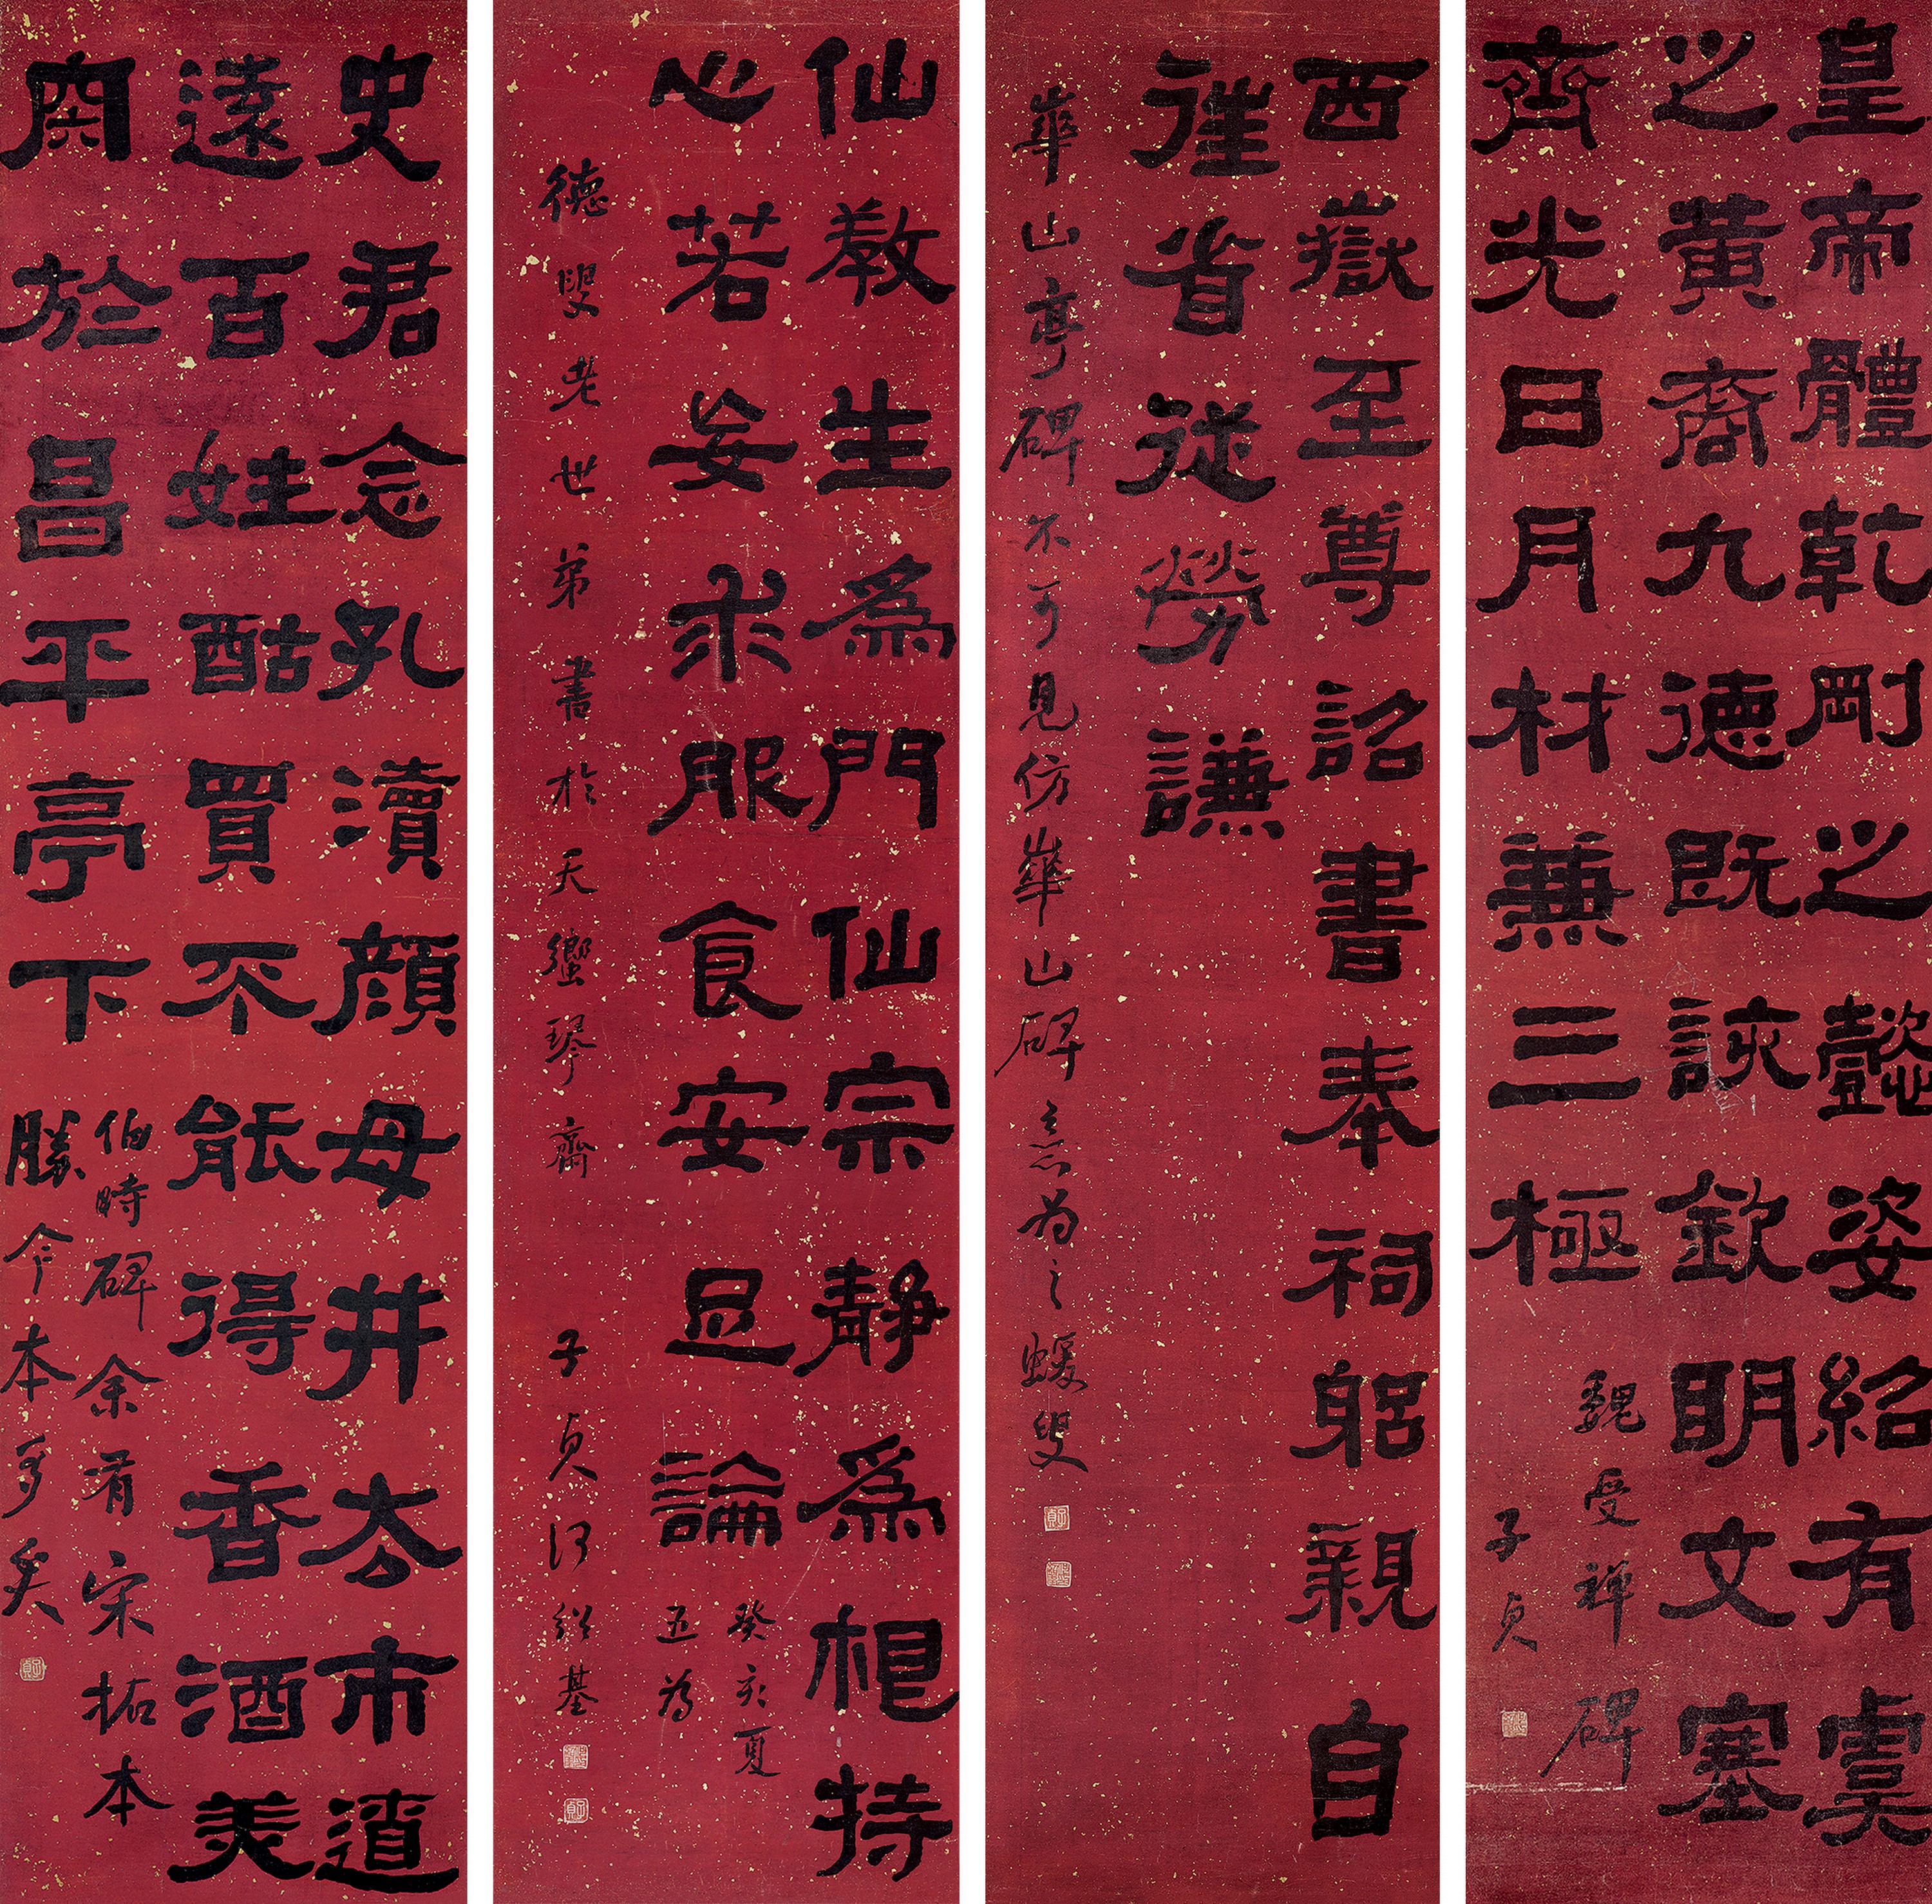 皇帝體乾剛之懿姿紹有虞
之黃裔九德既該欽明文塞
齊光日月材兼三極
魏受禪碑
子貞
西嶽至尊詔書奉祠躬親自
往省從勞謙
華山亭碑不可見仿華山碑意为之蝯叟
仙教生爲門仙宗靜爲根持
心若妄求服食安足論
癸亥夏
五為
德叟老世弟書於天蠁琴齋 子貞何紹基
史君念孔瀆顏母井去市遼
遠百姓酤買不能得香酒美
肉於昌平亭下
伯時碑余有宋拓本
勝今本多矣